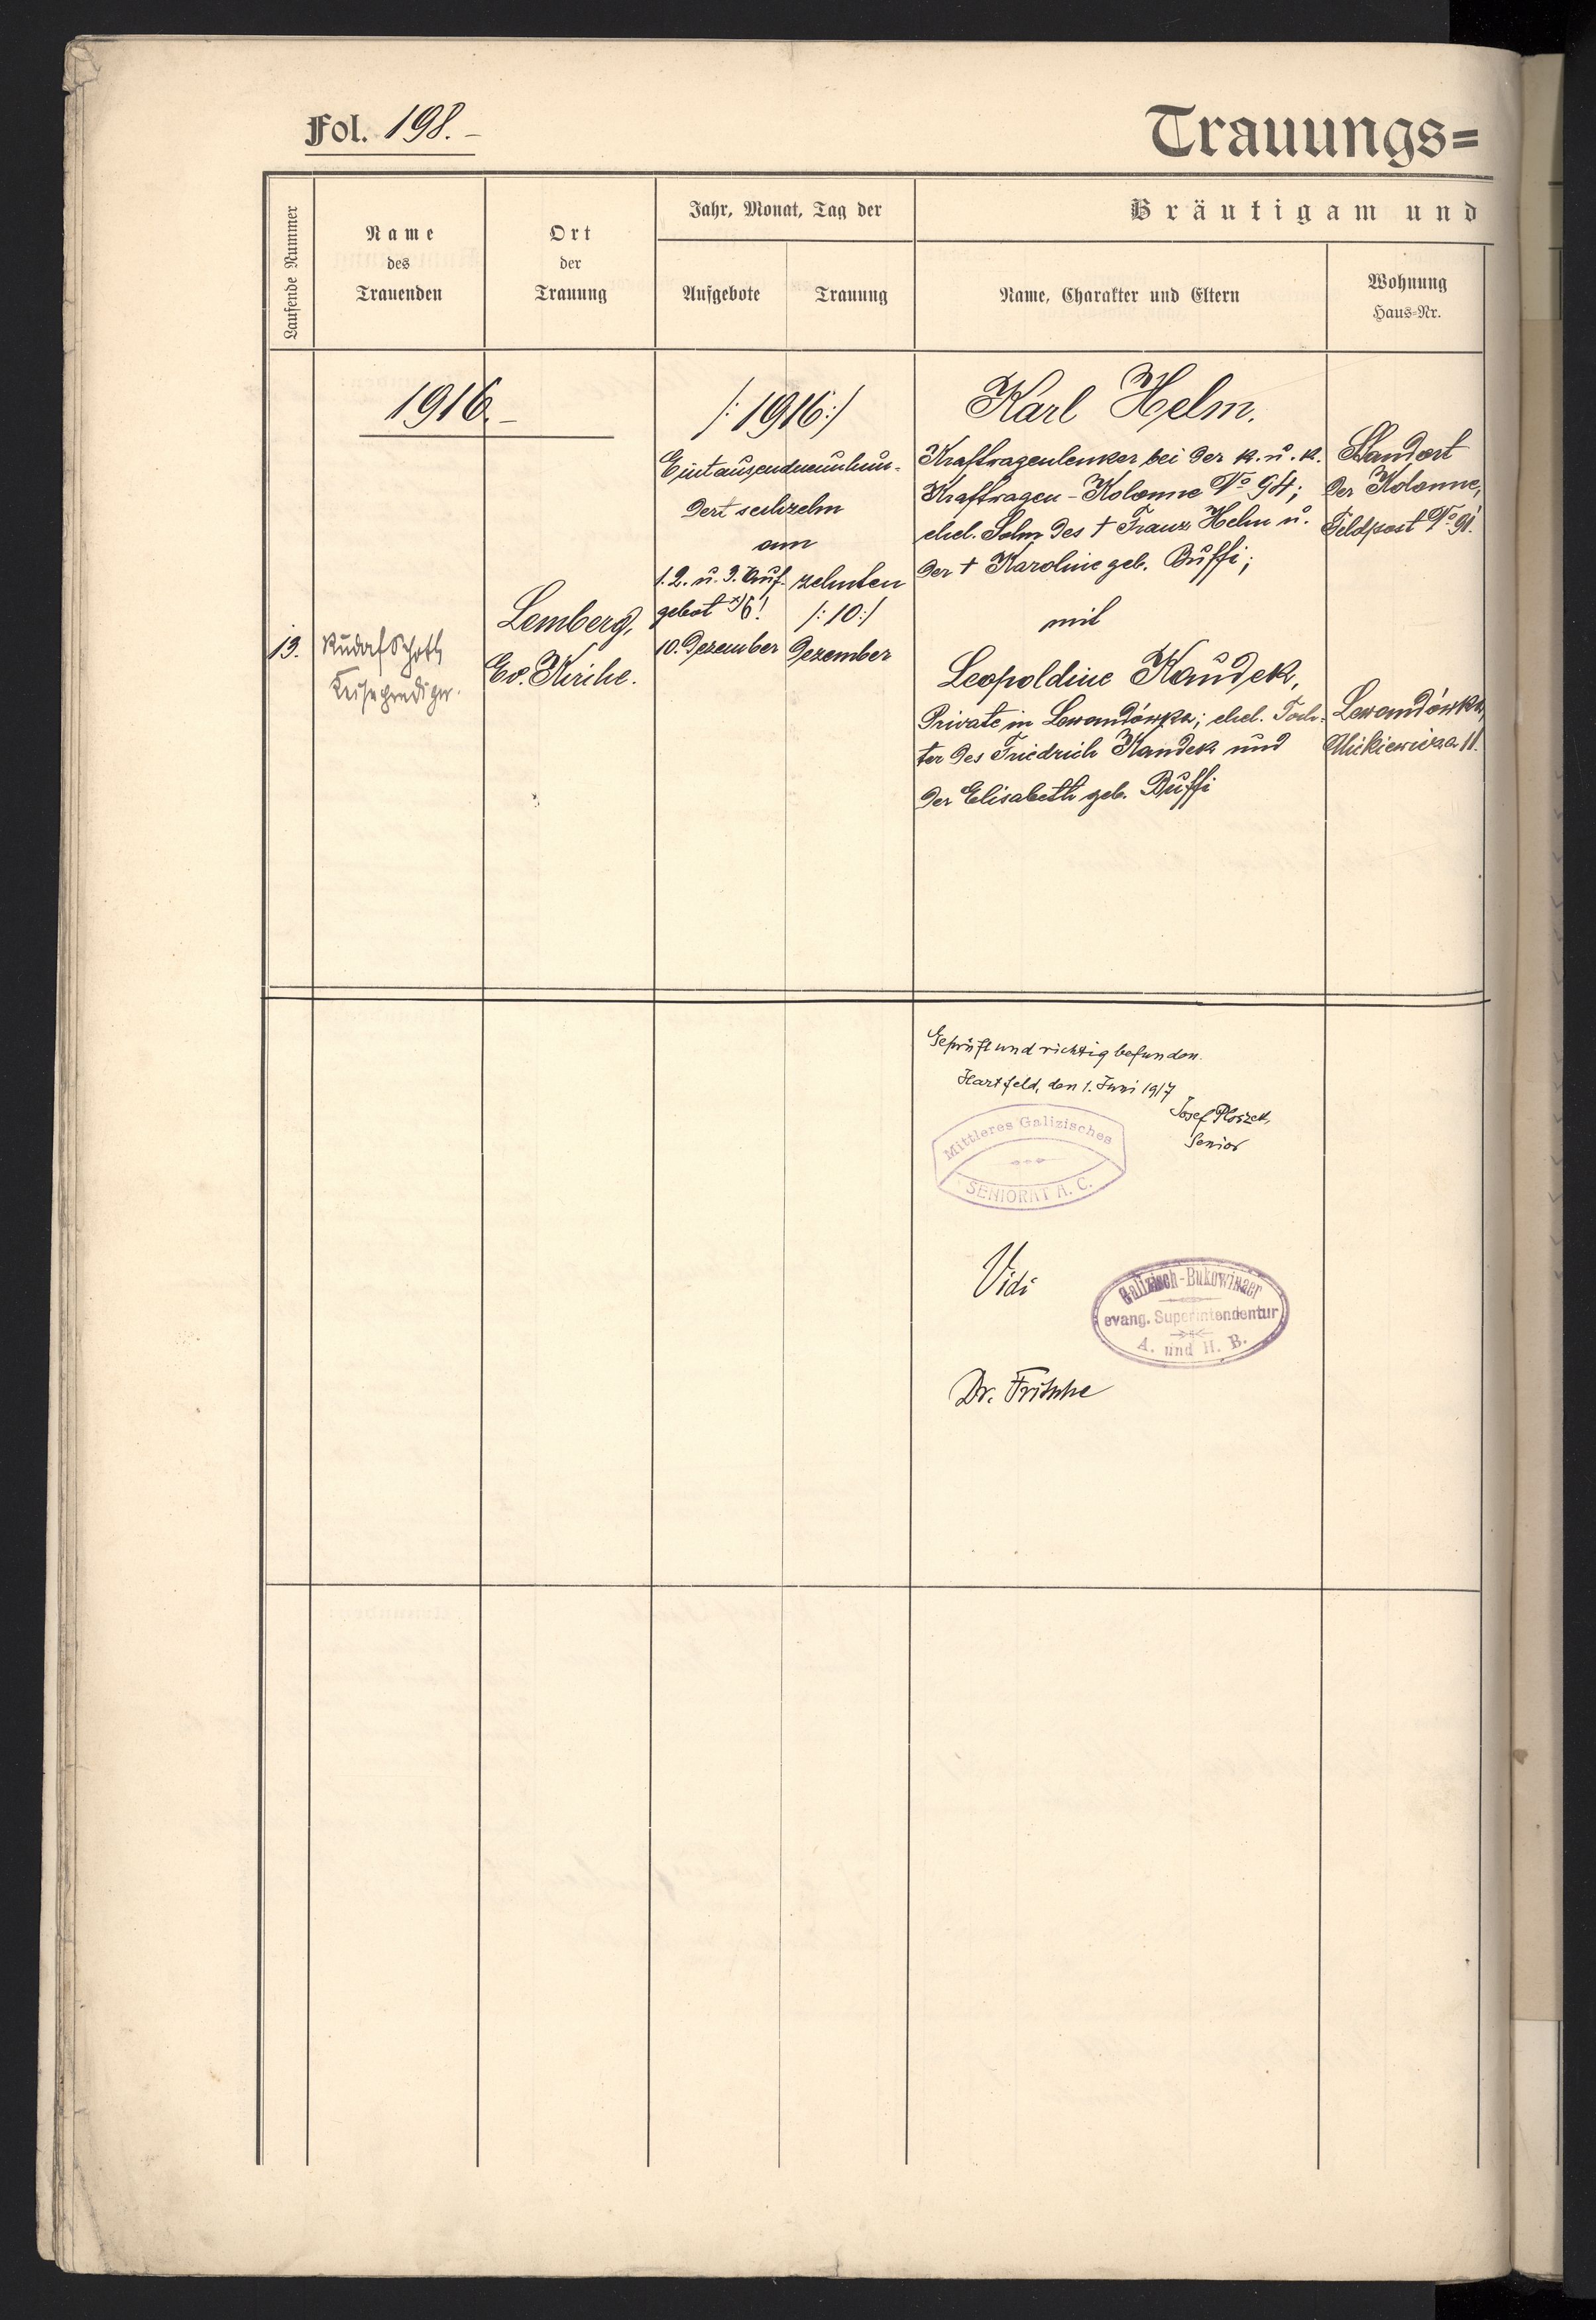 Fol. 198.-
Trauungs=
Laufende Nummer
Name
des
Trauenden
Ort
der
Trauung
Jahr, Monat, Tag der
Aufgebote
Trauung
Bräutigam und
Name, Charakter und Eltern
Wohnung
Haus-Nr.
1916.-
13.
Rudolf
Reiseprediger.
Lemberg,
Ev. Kirche.
/: 1916 :/
Eintausendneunhun-
dert sechzehn
am
1. 2. u. 3. Auf-
gebot
10. Dezember
zehnten
/: 10 :/
Dezember
Karl Helm.
Kraftwagenlenker bei der k. u. k.
Kraftwagen-Kolonne No 94;
ehel. Sohn des † Franz Helm u.
der † Karoline geb. Buffi;
mit
Leopoldine Kaudek,
Private in Lewandówka; ehel. Toch-
ter des Friedrich Kaudek und
der Elisabeth geb. Buffi
Standort
der Kolonne,
Feldpost No 91.
Lewandówka,
Mickiewicza 11.
Geprüft und richtig befunden.
Hartfeld, den 1. Juni 1917
Josef Ploszek,
Senior
Mittleres Galizisches
SENIORAT A. C.
Vidi
Galizisch-Bukowinaer
evang. Superintendentur
A. und H. B.
Dr. Fritsche